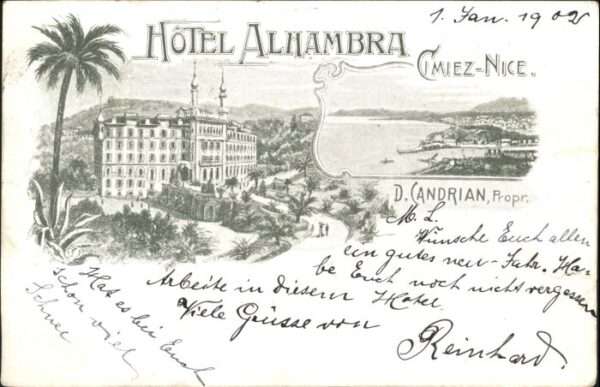 1. Jan. 1902
HÔTEL ALHAMBRA
CIMIEZ-NICE.
D. CANDRIAN, Propr.
M. L.
Wünsche Euch allen
ein gutes neu-Jahr. Ha-
be Euch noch nicht vergessen
Arbeite in diesem Hotel.
Viele Grüsse von
Reinhard.
Hat es bei Euch
schon viel
Schnee